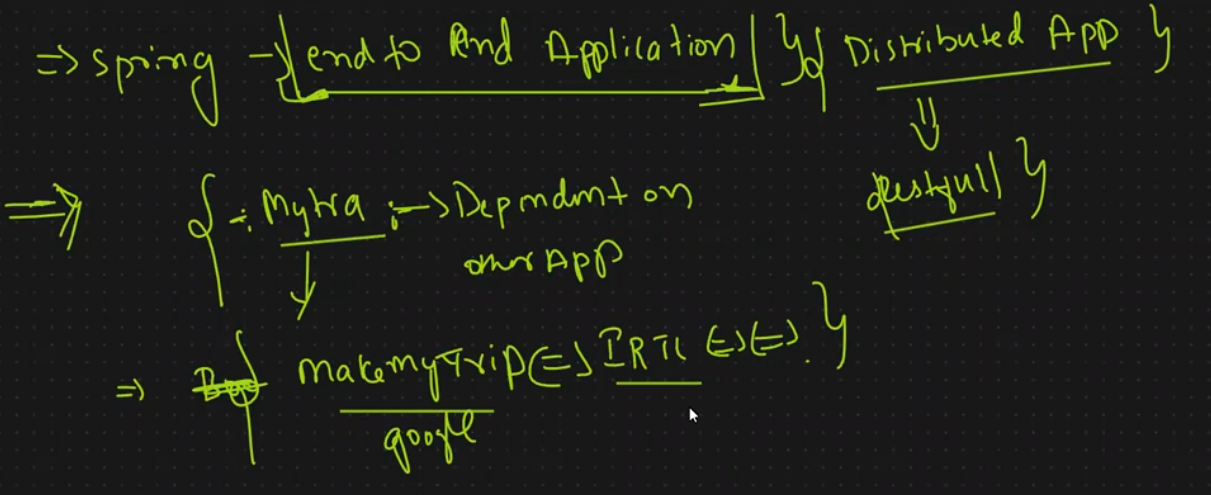 => spring - end to End Application } { Distributed App }
Restfull }
=> { -: Mytra :-> Dependmt on
other App
=> makemyTrip <=> IRTC <=> <=> . }
google